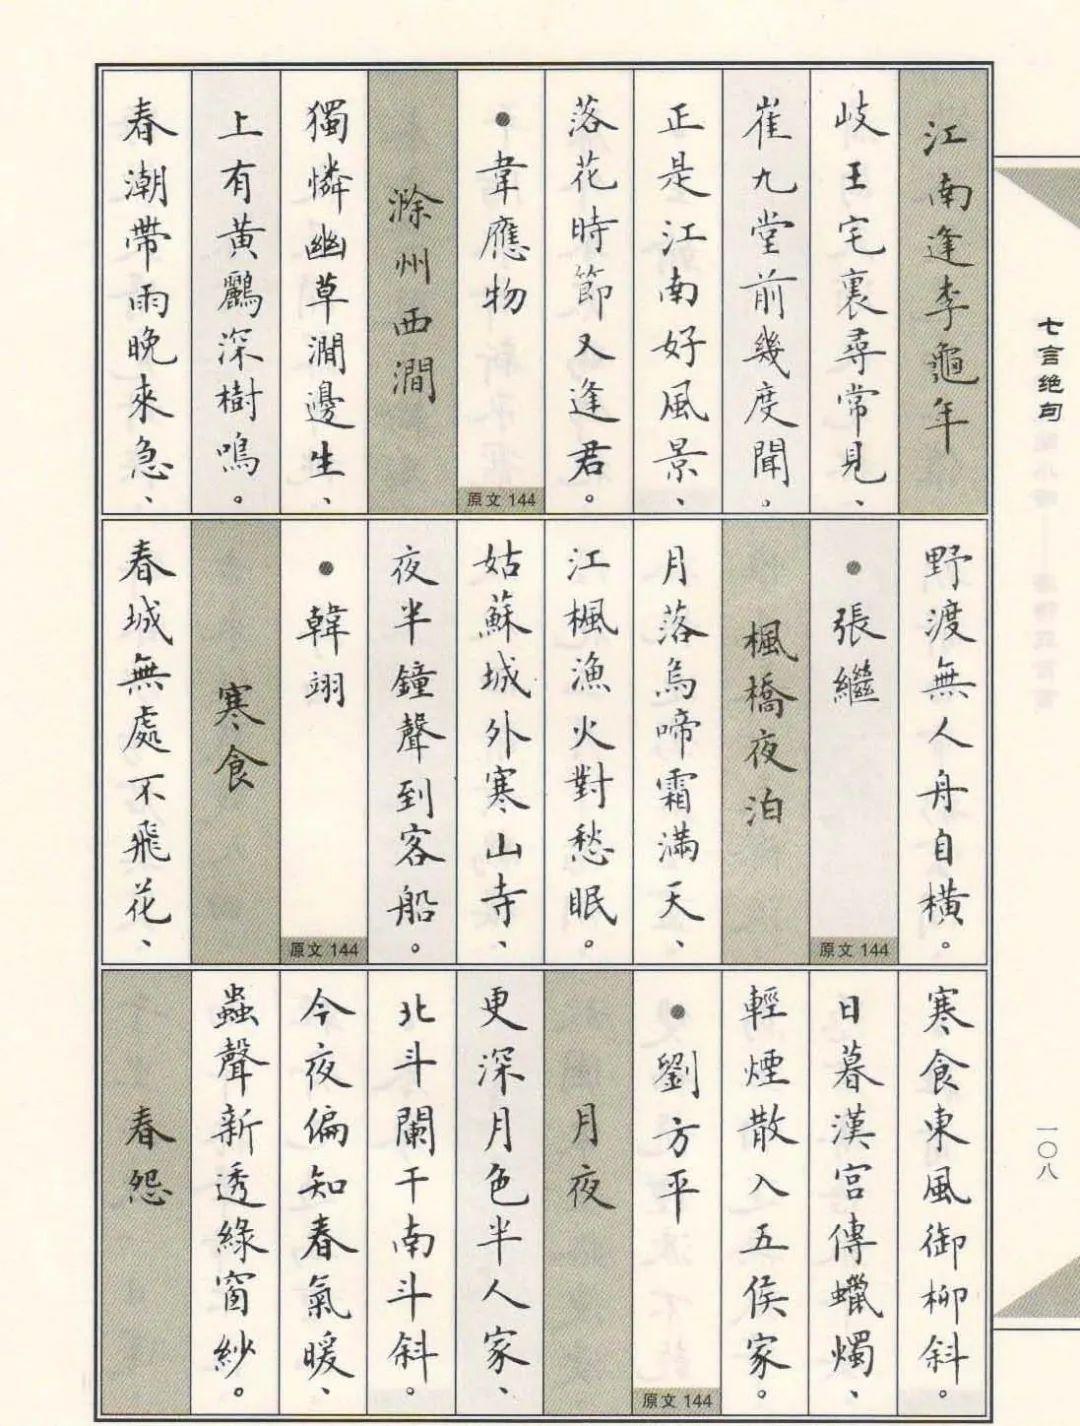 江南逢李龜年
岐王宅裏尋常見、
崔九堂前幾度聞。
正是江南好風景、
落花時節又逢君。
●韋應物
原文144
滁州西澗
獨憐幽草澗邊生、
上有黃鸝深樹鳴。
春潮帶雨晚來急、
野渡無人舟自橫。
●張繼
原文144
楓橋夜泊
月落烏啼霜滿天、
江楓漁火對愁眠。
姑蘇城外寒山寺、
夜半鐘聲到客船。
●韓翊
原文144
寒食
春城無處不飛花、
寒食東風御柳斜。
日暮漢宮傳蠟燭、
輕煙散入五侯家。
●劉方平
原文144
月夜
更深月色半人家、
北斗闌干南斗斜。
今夜偏知春氣暖、
蟲聲新透綠窗紗。
春怨
七言绝句
一〇八